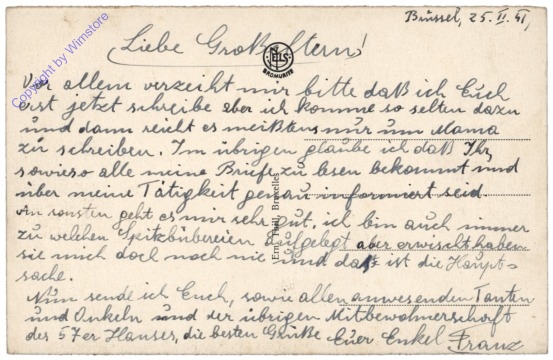 Brüssel, 25. II. 41,
Liebe Großeltern!
NELS
BROMURITE
Vor allem verzeiht mir bitte daß ich Euch
erst jetzt schreibe aber ich komme so selten dazu
und dann reicht es meißtens nur um Mama
zu schreiben. Im übrigen glaube ich daß Ihr
sowieso alle meine Briefe zu lesen bekommt und
über meine Tätigkeit genau informiert seid
An sonsten geht es mir sehr gut, ich bin auch immer
zu welchen Spitzbübereien aufgelegt aber erwischt haben
sie mich doch noch nie und das ist die Haupt-
sache.
Nun sende ich Euch, sowie allen anwesenden Tanten
und Onkeln und der übrigen Mitbewohnerschaft
des 57er Hauses, die besten Grüße Euer Enkel Franz
Ern. Thill, Bruxelles
Copyright by Wimstore